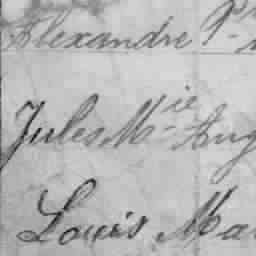 Alexandre P
Jules M^ie Aug
Louis Ma